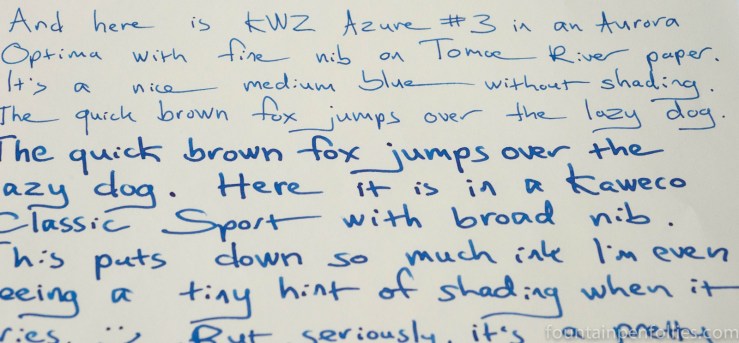 And here is KWZ Azure #3 in an Aurora
Optima with fine nib on Tomoe River paper.
It's a nice medium blue without shading.
The quick brown fox jumps over the lazy dog.
The quick brown fox jumps over the
azy dog. Here it is in a Kaweco
Classic Sport with broad nib.
This puts down so much ink I'm even
eeing a tiny hint of shading when it
ries. :) But seriously, it's a pretty
fountainpenfollies.com